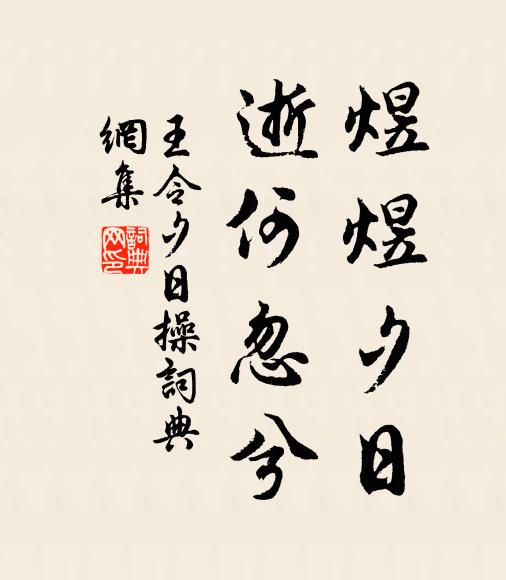 煜煜夕日
逝何忽兮
王令夕日操詞典
網集
詞典
网印